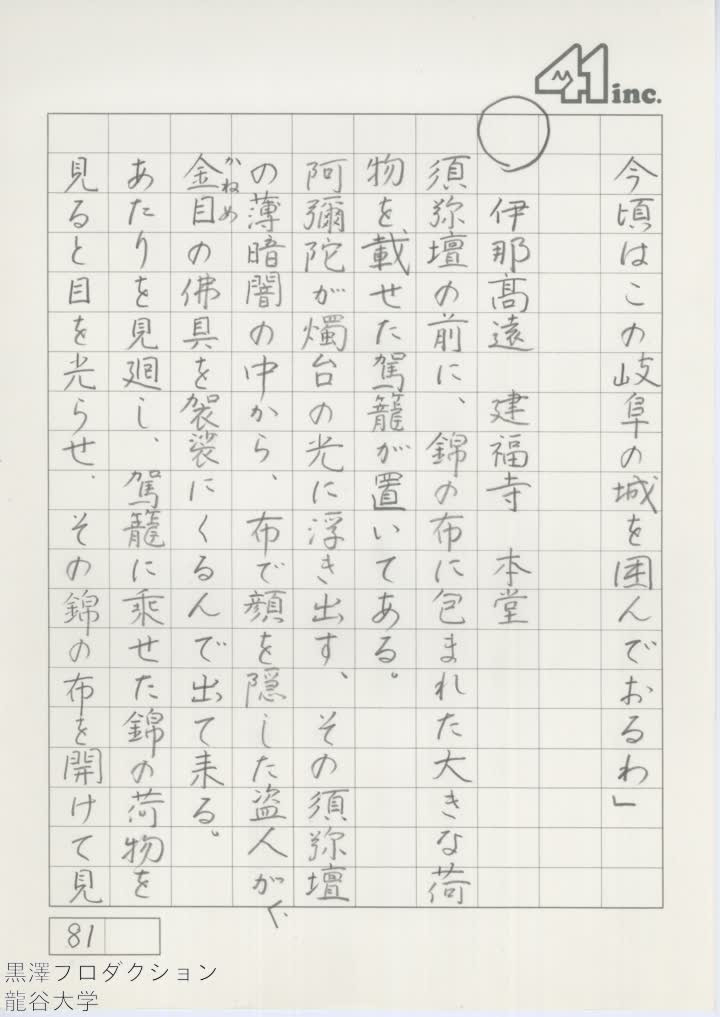 41 inc.
今頃はこの岐阜の城を囲んでおるわ」
○ 伊那高遠 建福寺 本堂
須弥壇の前に、錦の布に包まれた大きな荷
物を載せた駕籠が置いてある。
阿彌陀が燭台の光に浮き出す、その須弥壇
の薄暗闇の中から、布で顔を隠した盗人が
金目の佛具を袈裟にくるんで出て来る。
かねめ
あたりを見廻し、駕籠に乗せた錦の荷物を
見ると目を光らせ、その錦の布を開けて見
81
黒澤プロダクション
龍谷大学